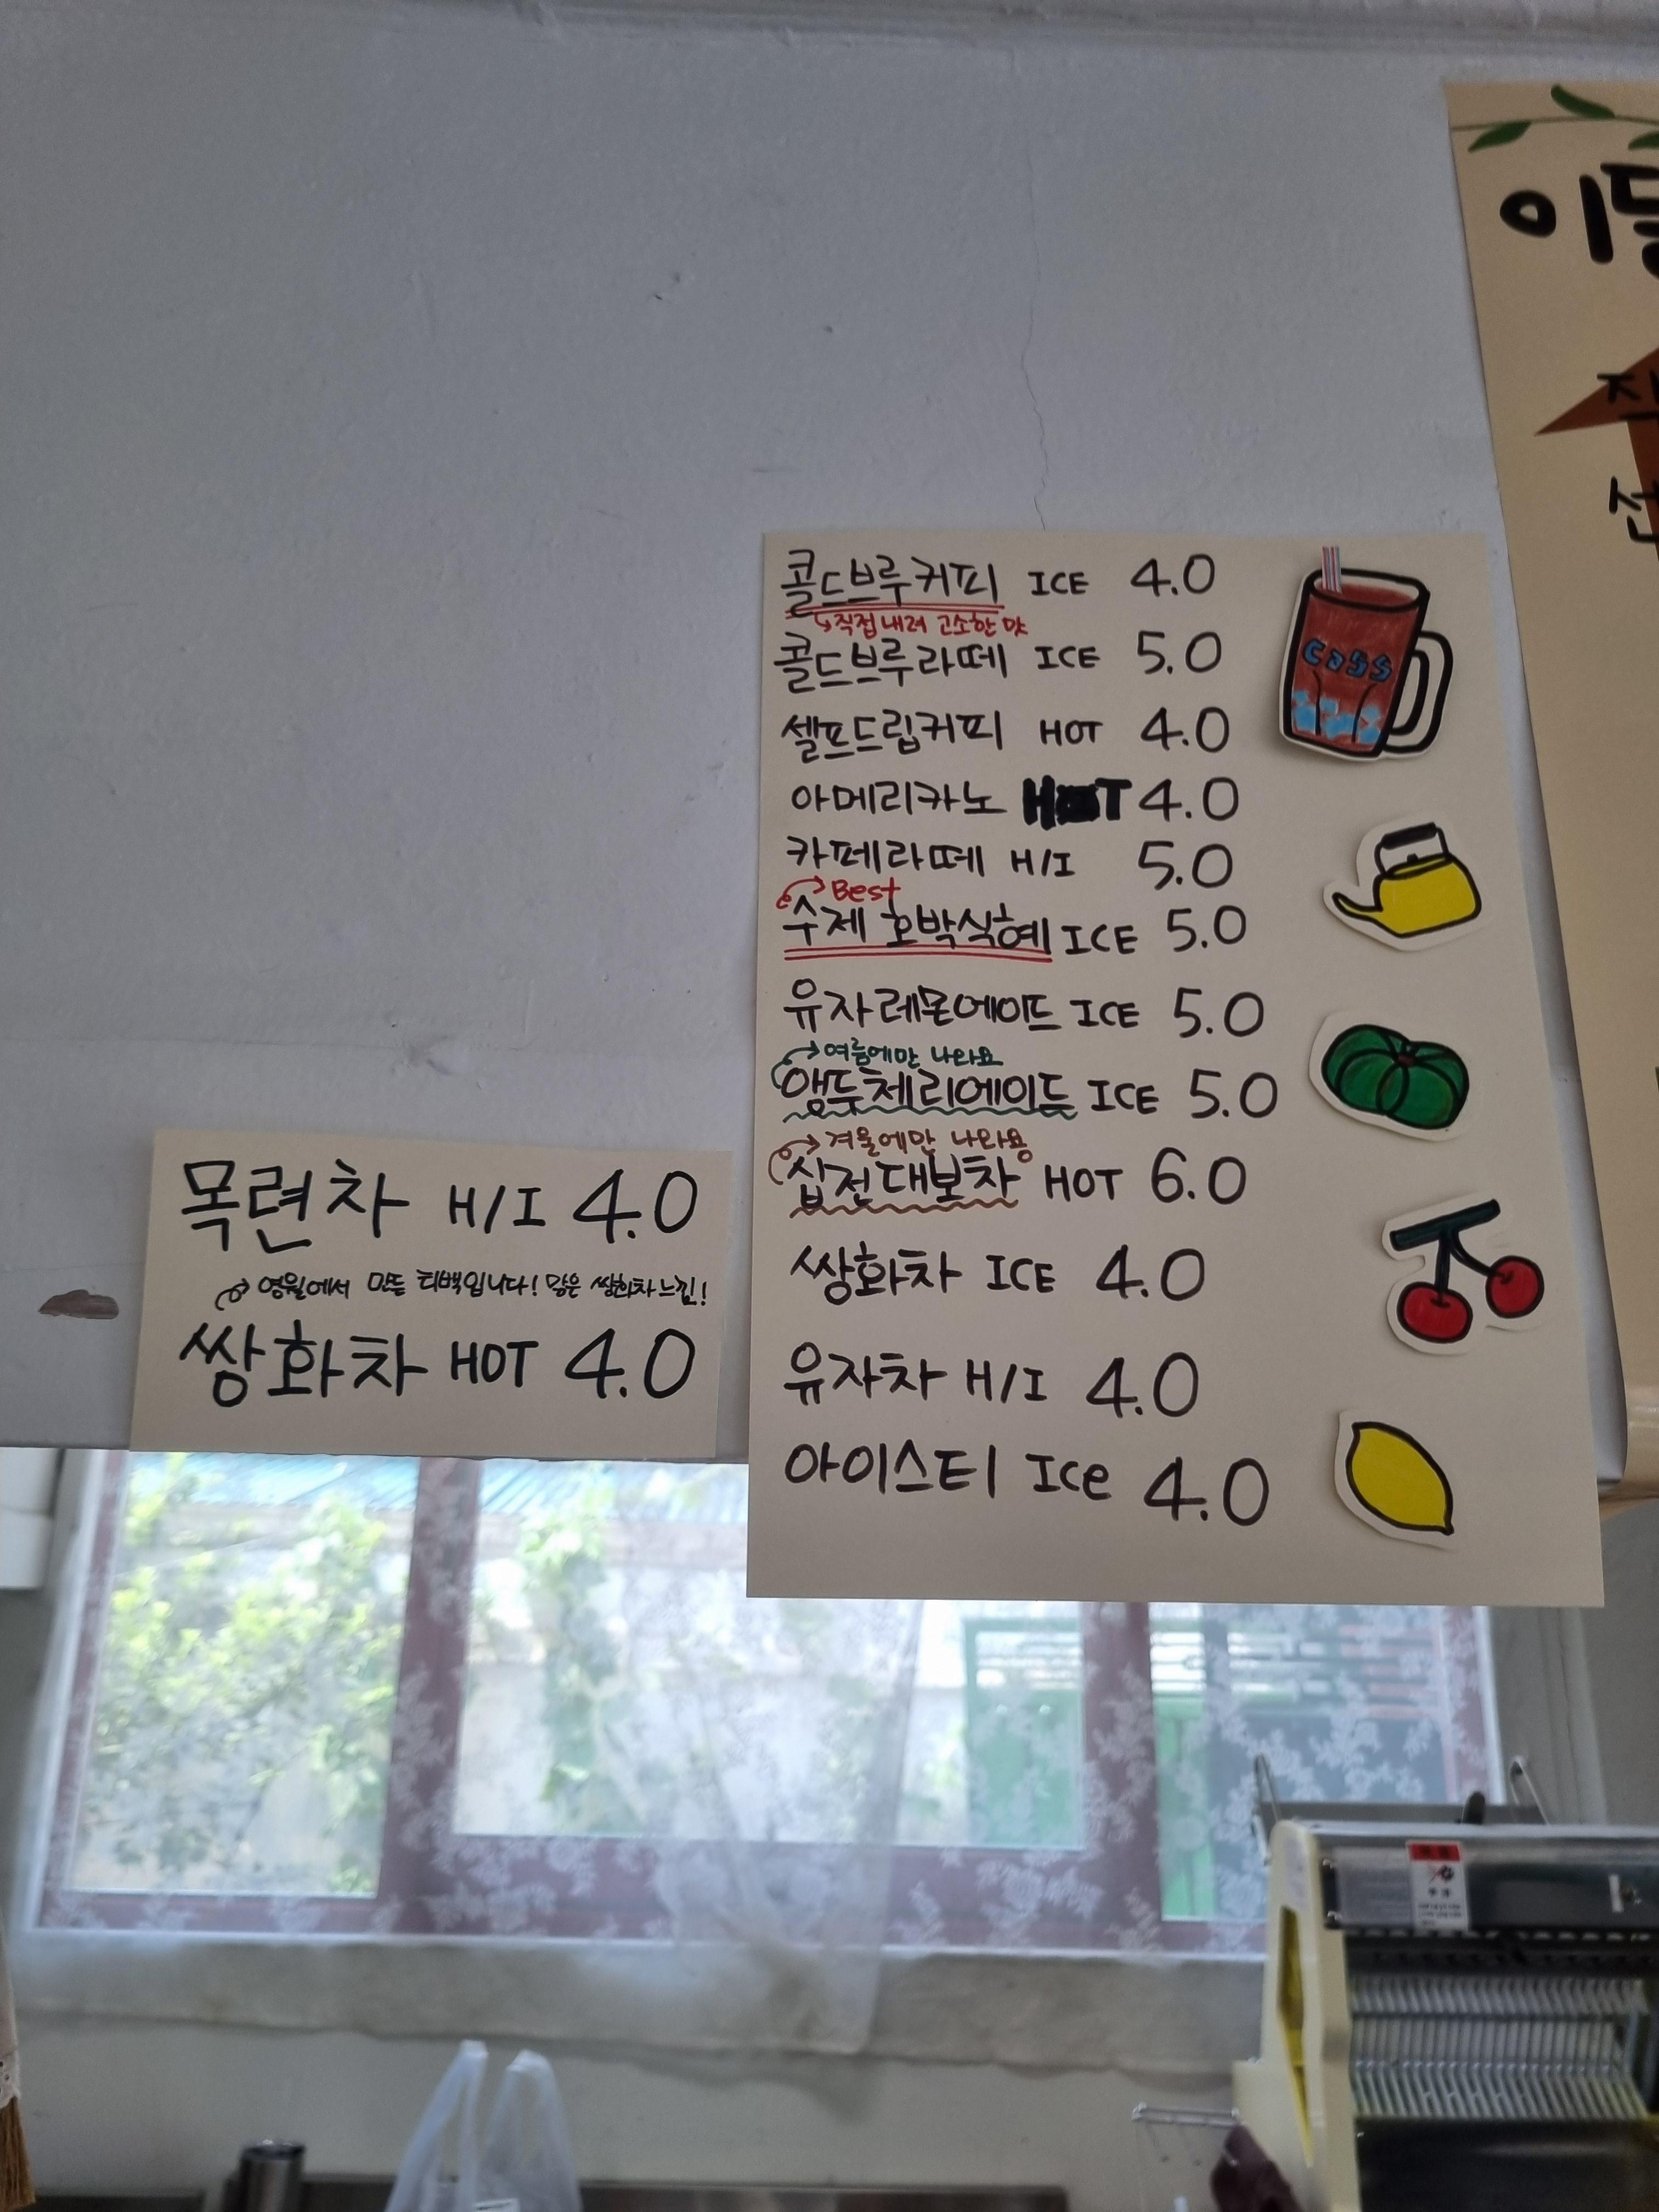 콜드브루커피 ICE 4.0
직접 내려 고소한 맛
콜드브루라떼 ICE 5.0
셀프드립커피 HOT 4.0
아메리카노 HOT 4.0
카페라떼 H/I 5.0
Best
수제 호박식혜 ICE 5.0
유자레몬에이드 ICE 5.0
여름에만 나와요
앵두체리에이드 ICE 5.0
겨울에만 나와용
십전대보차 HOT 6.0
쌍화차 ICE 4.0
유자차 H/I 4.0
아이스티 Ice 4.0
cass
목련차 H/I 4.0
영월에서 만든 티백입니다! 맑은 쌍화차느낌!
쌍화차 HOT 4.0